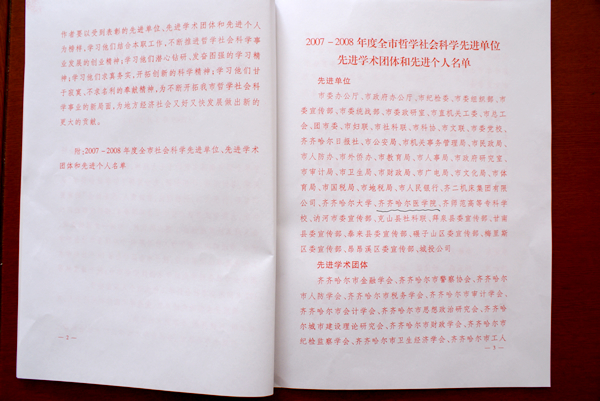 作者要以受到表彰的先进单位、先进学术团体和先进个人
为榜样,学习他们结合本职工作,不断推进哲学社会科学事
业发展的创业精神;学习他们潜心钻研,发奋图强的学习精
神;学习他们求真务实,开拓创新的科学精神;学习他们甘
于寂寞,不求名利的奉献精神,为不断开拓我市哲学社会科
学事业的新局面,为地方经济社会又好又快发展做出新的
更大的贡献。
附:2007-2008年度全市社会科学先进单位、先进学术
团体和先进个人名单
— 2 —
2007-2008年度全市哲学社会科学先进单位
先进学术团体和先进个人名单
先进单位
市委办公厅、市政府办公厅、市纪检委、市委组织部、市
委宣传部、市委统战部、市委政研室、市直机关工委、市总工
会、团市委、市妇联、市社科联、市科协、市文联、市委党校、
齐齐哈尔日报社、市公安局、市机关事务管理局、市民政局、
市人防办、市外侨办、市教育局、市人事局、市政府研究室、
市审计局、市卫生局、市财政局、市广电局、市文化局、市体
育局、市国税局、市地税局、市人民银行、齐二机床集团有限
公司、齐齐哈尔大学、齐齐哈尔医学院、齐师范高等专科学
校、讷河市委宣传部、克山县社科联、拜泉县委宣传部、甘南
县委宣传部、泰来县委宣传部、碾子山区委宣传部、梅里斯
区委宣传部、昂昂溪区委宣传部、城投公司
先进学术团体
齐齐哈尔市金融学会、齐齐哈尔市警察协会、齐齐哈尔
市人防学会、齐齐哈尔市税务学会、齐齐哈尔市审计学会、
齐齐哈尔市会计学会、齐齐哈尔市思想政治研究会、齐齐哈
尔城市建设理论研究会、齐齐哈尔市财政学会、齐齐哈尔市
纪检监察学会、齐齐哈尔市卫生经济学会、齐齐哈尔市工人
— 3 —